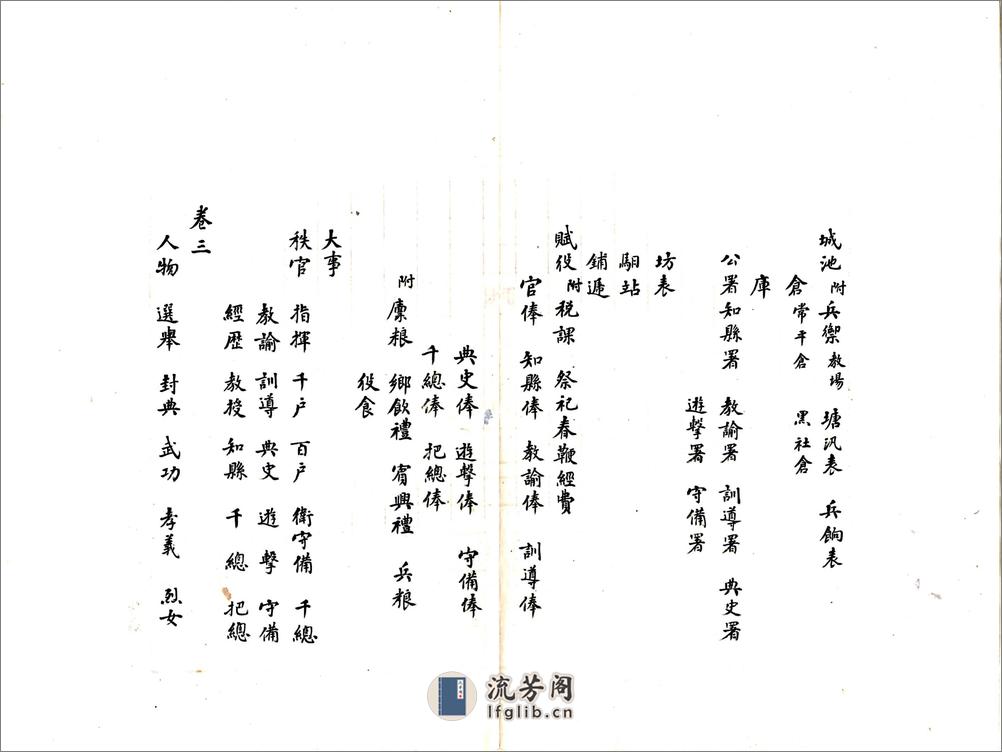 城池 附 兵禦 教場 塘汛表 兵餉表
倉 常平倉 黑社倉
庫
公署 知縣署 教諭署 訓導署 典史署
遊擊署 守備署
坊表
馹站
鋪遞
賦役 附 稅課 祭祀春鞭經費
官俸 知縣俸 教諭俸 訓導俸
典史俸 遊擊俸 守備俸
千總俸 把總俸
附 廩粮 鄉飲禮 賓興禮 兵粮
役食
大事
秩官 指揮 千戶 百戶 衛守備 千總
教諭 訓導 典史 遊擊 守備
經歷 教授 知縣 千總 把總
卷三
人物 選舉 封典 武功 孝義 烈女
流芳阁
lfglib.cn